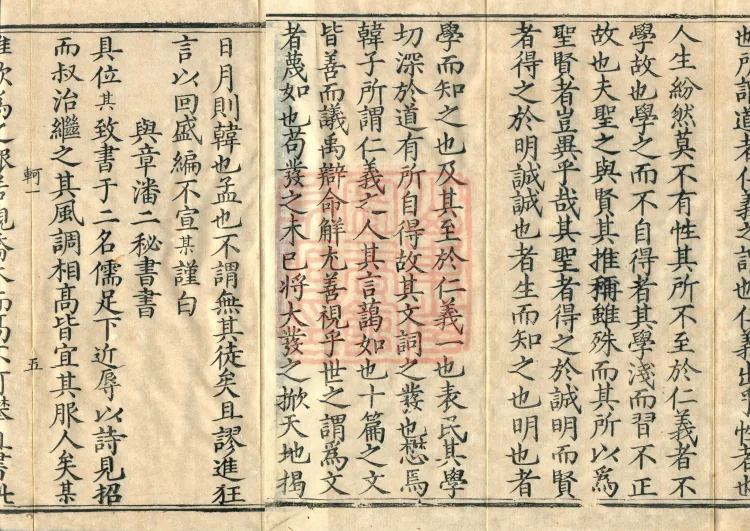 也所謂道者仁義之謂也仁義出乎性者也
人生紛然莫不有性其所不至於仁義者不
學故也學之而不自得者其學淺而習不正
故也夫聖之與賢其推稱雖殊而其所以為
聖賢者豈異乎哉其聖者得之於誠明而賢
者得之於明誠誠也者生而知之也明也者
學而知之也及其至於仁義一也表民其學
切深於道有所自得故其文詞之發也懋焉
韓子所謂仁義之人其言藹如也十篇之文
皆善而議禹辯命解尤善視乎世之謂為文
者蔑如也苟發之未已將大發之掀天地揭
日月則韓也孟也不謂無其徒矣且謬進狂
言以回盛編不宣某謹白
與章潘二秘書書
具位其致書于二名儒足下近辱以詩見招
而叔治繼之其風調相高皆宜其服人矣某
軻 五